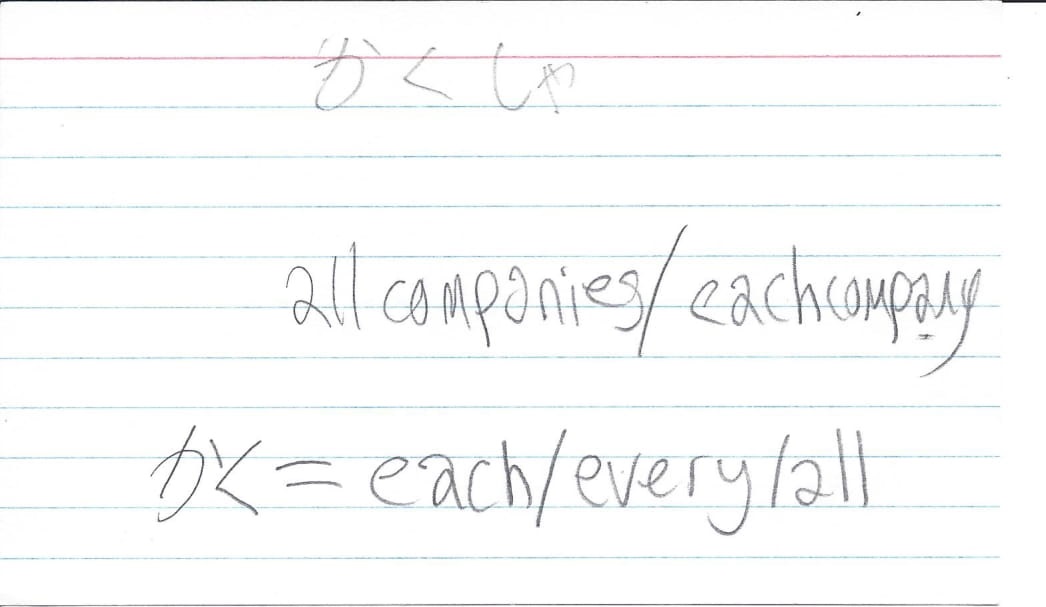 かくしゃ
all companies/each company
かく = each/every/all